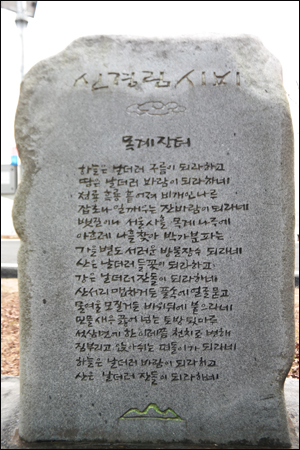 신경림시비
목계장터
하늘은 날더러 구름이 되라하고
땅은 날더러 바람이 되라하네
청룡 흑룡 흩어져 비개인 나루
잡초나 일깨우는 잔바람이 되라네
뱃길이라 서울 사흘 목계 나루에
아흐레 나흘 찾아 박가분 파는
가을볕도 서러운 방물장수 되라네
산은 날더러 들꽃이 되라하고
강은 날더러 잔돌이 되라하네
산서리 맵차거든 풀속에 얼굴묻고
물여울 모질거든 바위뒤에 붙으라네
민물새우 끓어 넘는 토방 툇마루
석삼년에 한이레쯤 천치로 변해
짐부리고 앉아쉬는 떠돌이가 되라네
하늘은 날더러 바람이 되라하고
산은 날더러 잔돌이 되라하네